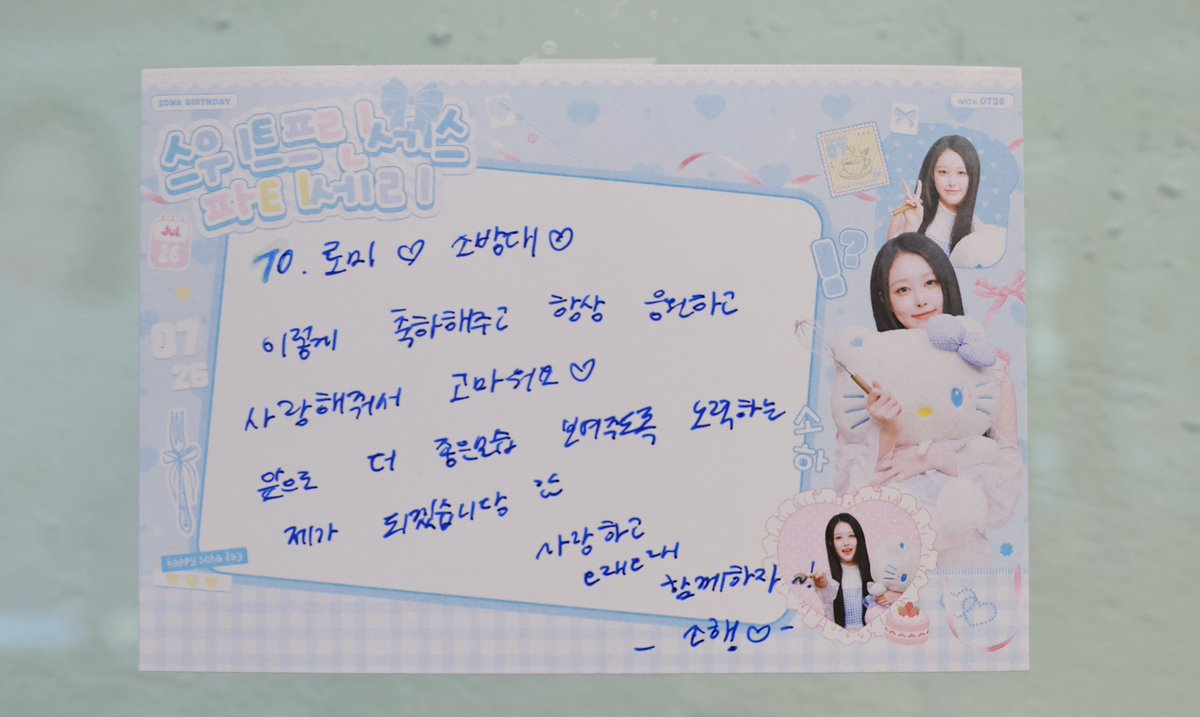 SOHA BIRTHDAY
WITH 0726
스위트프린세스
파티세리
07
!?
JUL
26
07
26
TO. 로미 ♡ 소방대 ♡
이렇게 축하해주고 항상 응원하고
사랑해줘서 고마워요 ♡
앞으로 더 좋은모습 보여주도록 노력하는
제가 되겠습니당 ^^
사랑하고
오래오래
함께하자 ~!
- 소행 ♡ -
소하
happy soha day